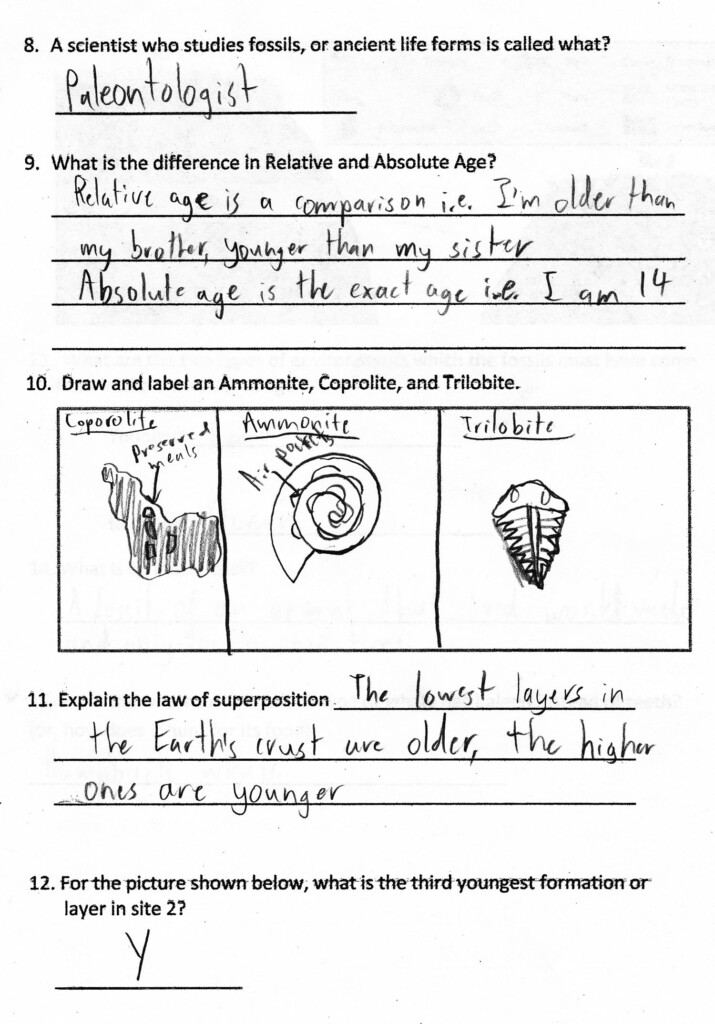 8. A scientist who studies fossils, or ancient life forms is called what?
Paleontologist
9. What is the difference in Relative and Absolute Age?
Relative age is a comparison i.e. I'm older than
my brother, younger than my sister
Absolute age is the exact age i.e. I am 14
10. Draw and label an Ammonite, Coprolite, and Trilobite.
Coporolite
Preserved
meals
Ammonite
Air pockets
Trilobite
11. Explain the law of superposition The lowest layers in
the Earth's crust are older, the higher
ones are younger
12. For the picture shown below, what is the third youngest formation or
layer in site 2?
Y